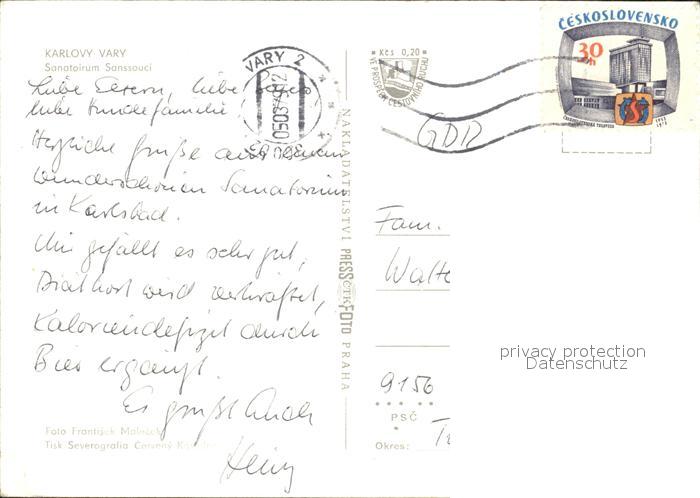 KARLOVY VARY
Sanatoirum Sanssouci
Liebe Eltern, liebe
liebe Hundefamilie!
Herzliche Grüße aus einem
wunderschönen Sanatorium
in Karlsbad.
Mir gefällt es sehr gut,
Diätkost wird verkraftet,
Kaloriendefizit durch
Bier ergänzt.
Es grüßt Euch
Heinz
Foto František
Tisk Severografia Červený
NAKLADATELSTVÍ PRESSFOTO PRAHA
ČTK
VARY 2
Kčs 0,20
VE PROSPĚCH CESTOVNÍHO RUCHU
ČESKOSLOVENSKO
30
h
ČESKOSLOVENSKÁ TELEVIZE
1953
1978
GDR
Fam.
Walte
9156
PSČ
Okres:
privacy protection
Datenschutz